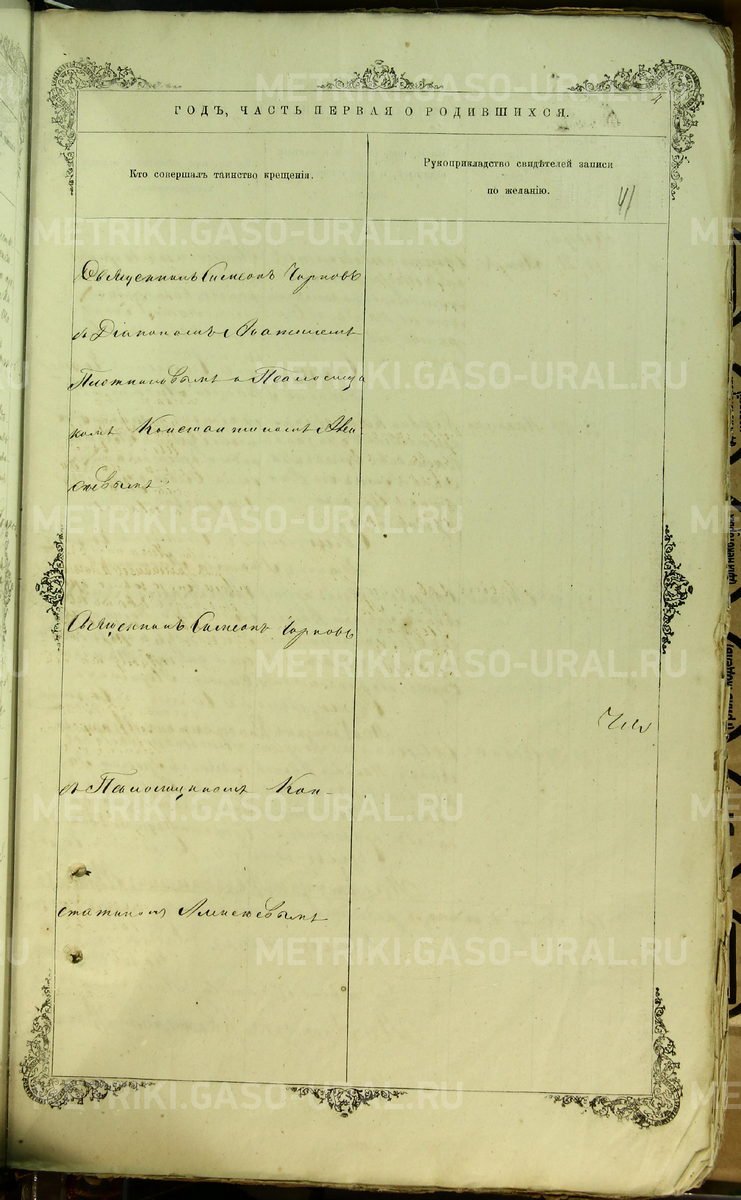 4
ГОДЪ, ЧАСТЬ ПЕРВАЯ О РОДИВШИХСЯ.
Кто совершалъ таинство крещенія.
Рукоприкладство свидѣтелей записи
по желанію.
41
Священникъ Симеонъ Чирковъ
съ Діакономъ
Плотниковымъ и Псаломщи
комъ Константиномъ
Священникъ Симеонъ Чирковъ
съ Псаломщикомъ Кон-
стантиномъ
METRIKI.GASO-URAL.RU